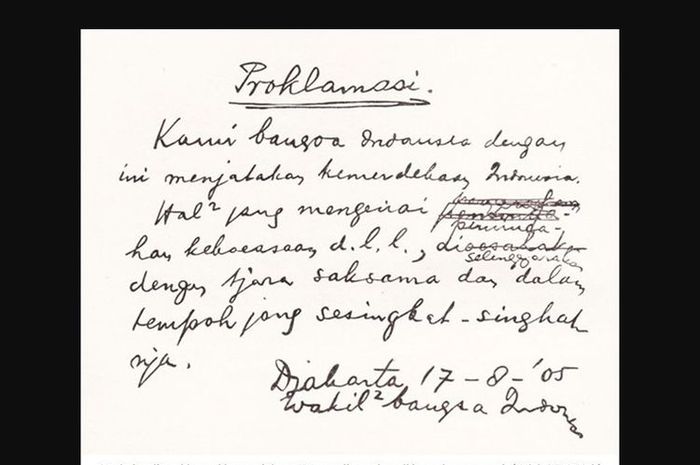 Proklamasi.
Kami bangsa Indonesia dengan
ini menjatakan kemerdekaan Indonesia.
Hal² jang mengenai
peminda-
han keboeasaan d.l.l.,
selenggarakan
dengan tjara saksama dan dalam
tempoh jang sesingkat-singkat
nja.
Djakarta 17-8-'05
Wakil² bangsa Indon